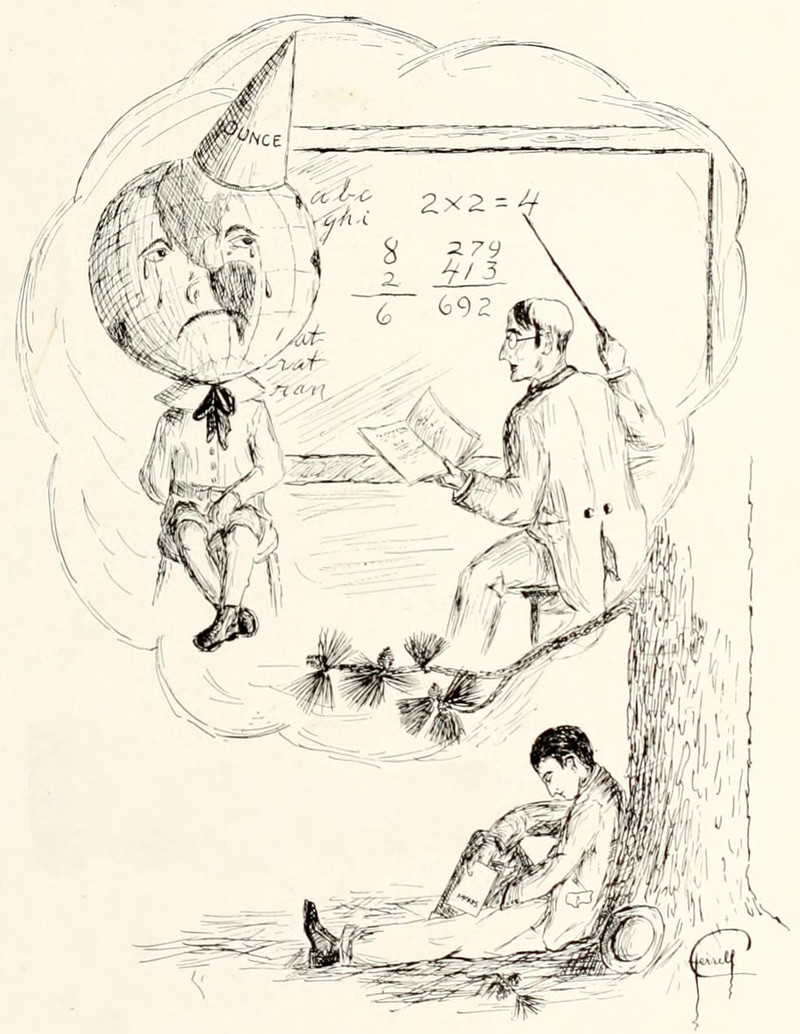 DUNCE
abc
ghi
2×2=4
8
2
6
279
413
692
at
rat
ran